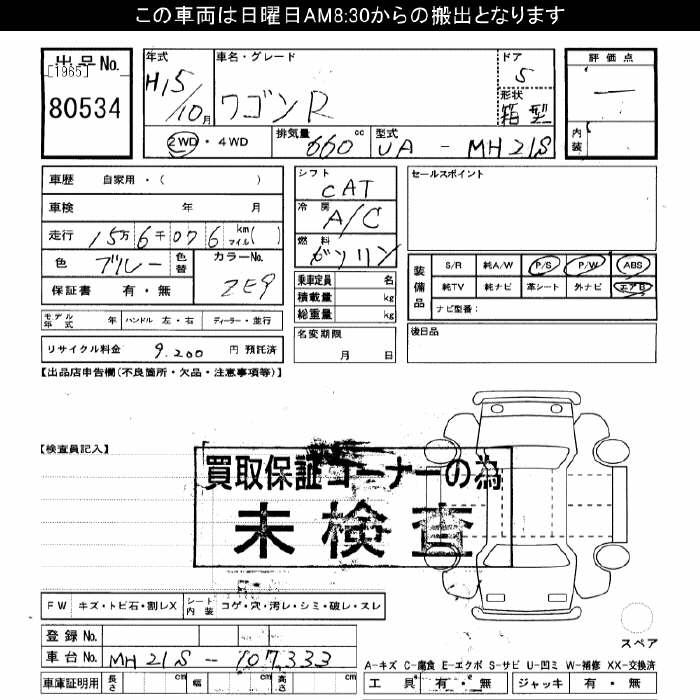 この車両は日曜日AM8:30からの搬出となります
出品No.
[1965]
80534
年式
H15/10月
車名・グレード
ワゴンR
ドア
5
形状
箱型
評価点
内装
2WD・4WD
排気量 660 cc
型式 UA-MH21S
車歴 自家用・( )
車検 年 月
走行 15万6千076 km マイル( )
色 ブルー 色替
カラーNo. ZE9
保証書 有・無
モデル年式 年 ハンドル 左・右 ディーラー・並行
リサイクル料金 9.200 円 預託済
シフト CAT
冷房 A/C
燃料 ガソリン
乗車定員 名
積載量 kg
総重量 kg
名変期限
月 日
セールスポイント
装備品
S/R 純A/W P/S P/W ABS
純TV 純ナビ 革シート 外ナビ エアB
ナビ型番:
後日品
【出品店申告欄(不良箇所・欠品・注意事項等)】
【検査員記入】
買取保証コーナーの為
未検査
FW キズ・トビ石・割レX シート内装 コゲ・穴・汚レ・シミ・破レ・スレ
登録No.
車台No. MH21S-107333
車庫証明用 長さ cm 幅 cm 高さ cm
スペア
A-キズ C-腐食 E-エクボ S-サビ U-凹ミ W-補修 XX-交換済
工具 有・無 ジャッキ 有・無